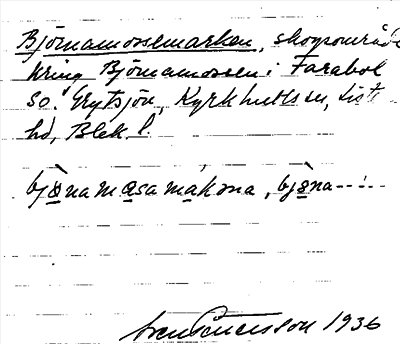 Björnamossemarken, skogsområde
kring Björnamossen i Farabol
so. Grytsjön, Kyrkhultssn, List
hd, Blek. l.
bjönamåsamakona, bjöna-----
1936